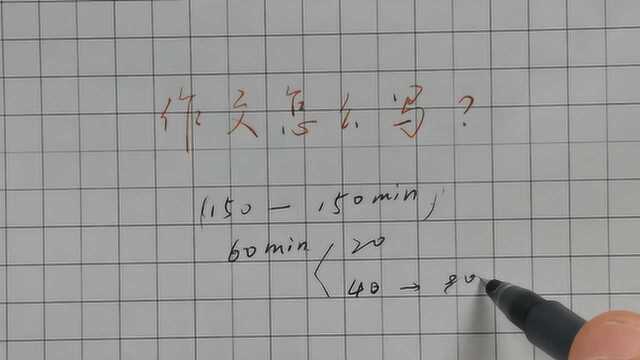 作文怎么写？
(150 - 150min)
60min 20
40 → 80